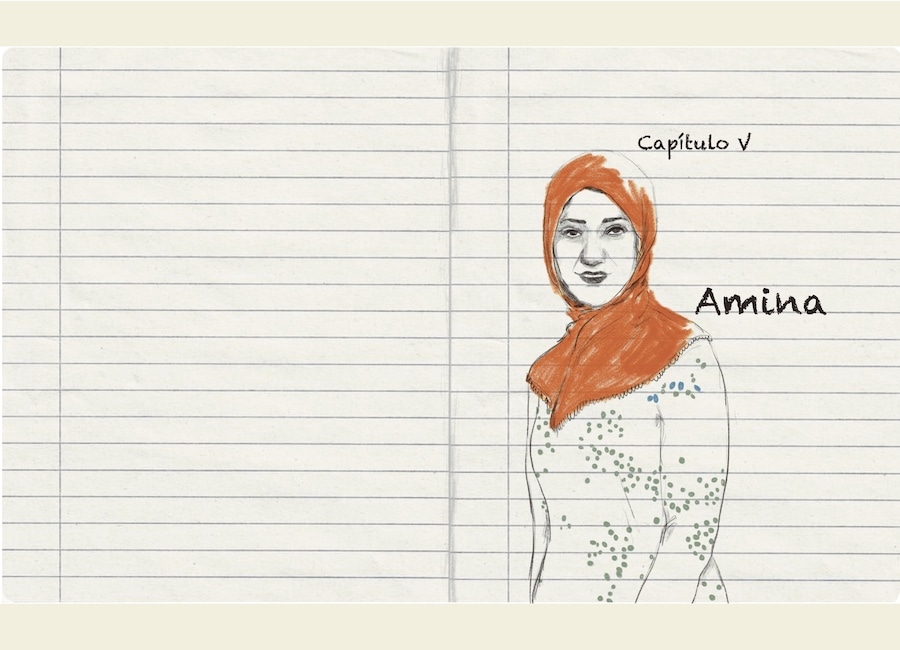 Capítulo V
Amina